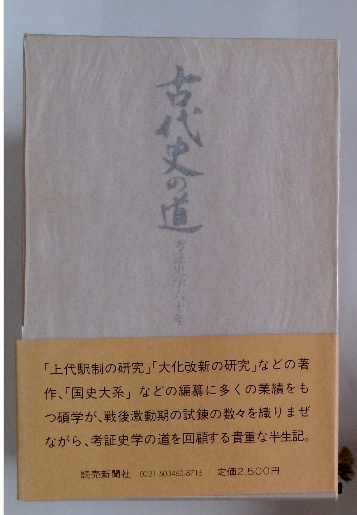 古代史の道
考証史学六十年
「上代駅制の研究」「大化改新の研究」などの著
作、「国史大系」などの編纂に多くの業績をも
つ碩学が、戦後激動期の試錬の数々を織りまぜ
ながら、考証史学の道を回顧する貴重な半生記。
読売新聞社 0021-503460-8715 定価2,500円